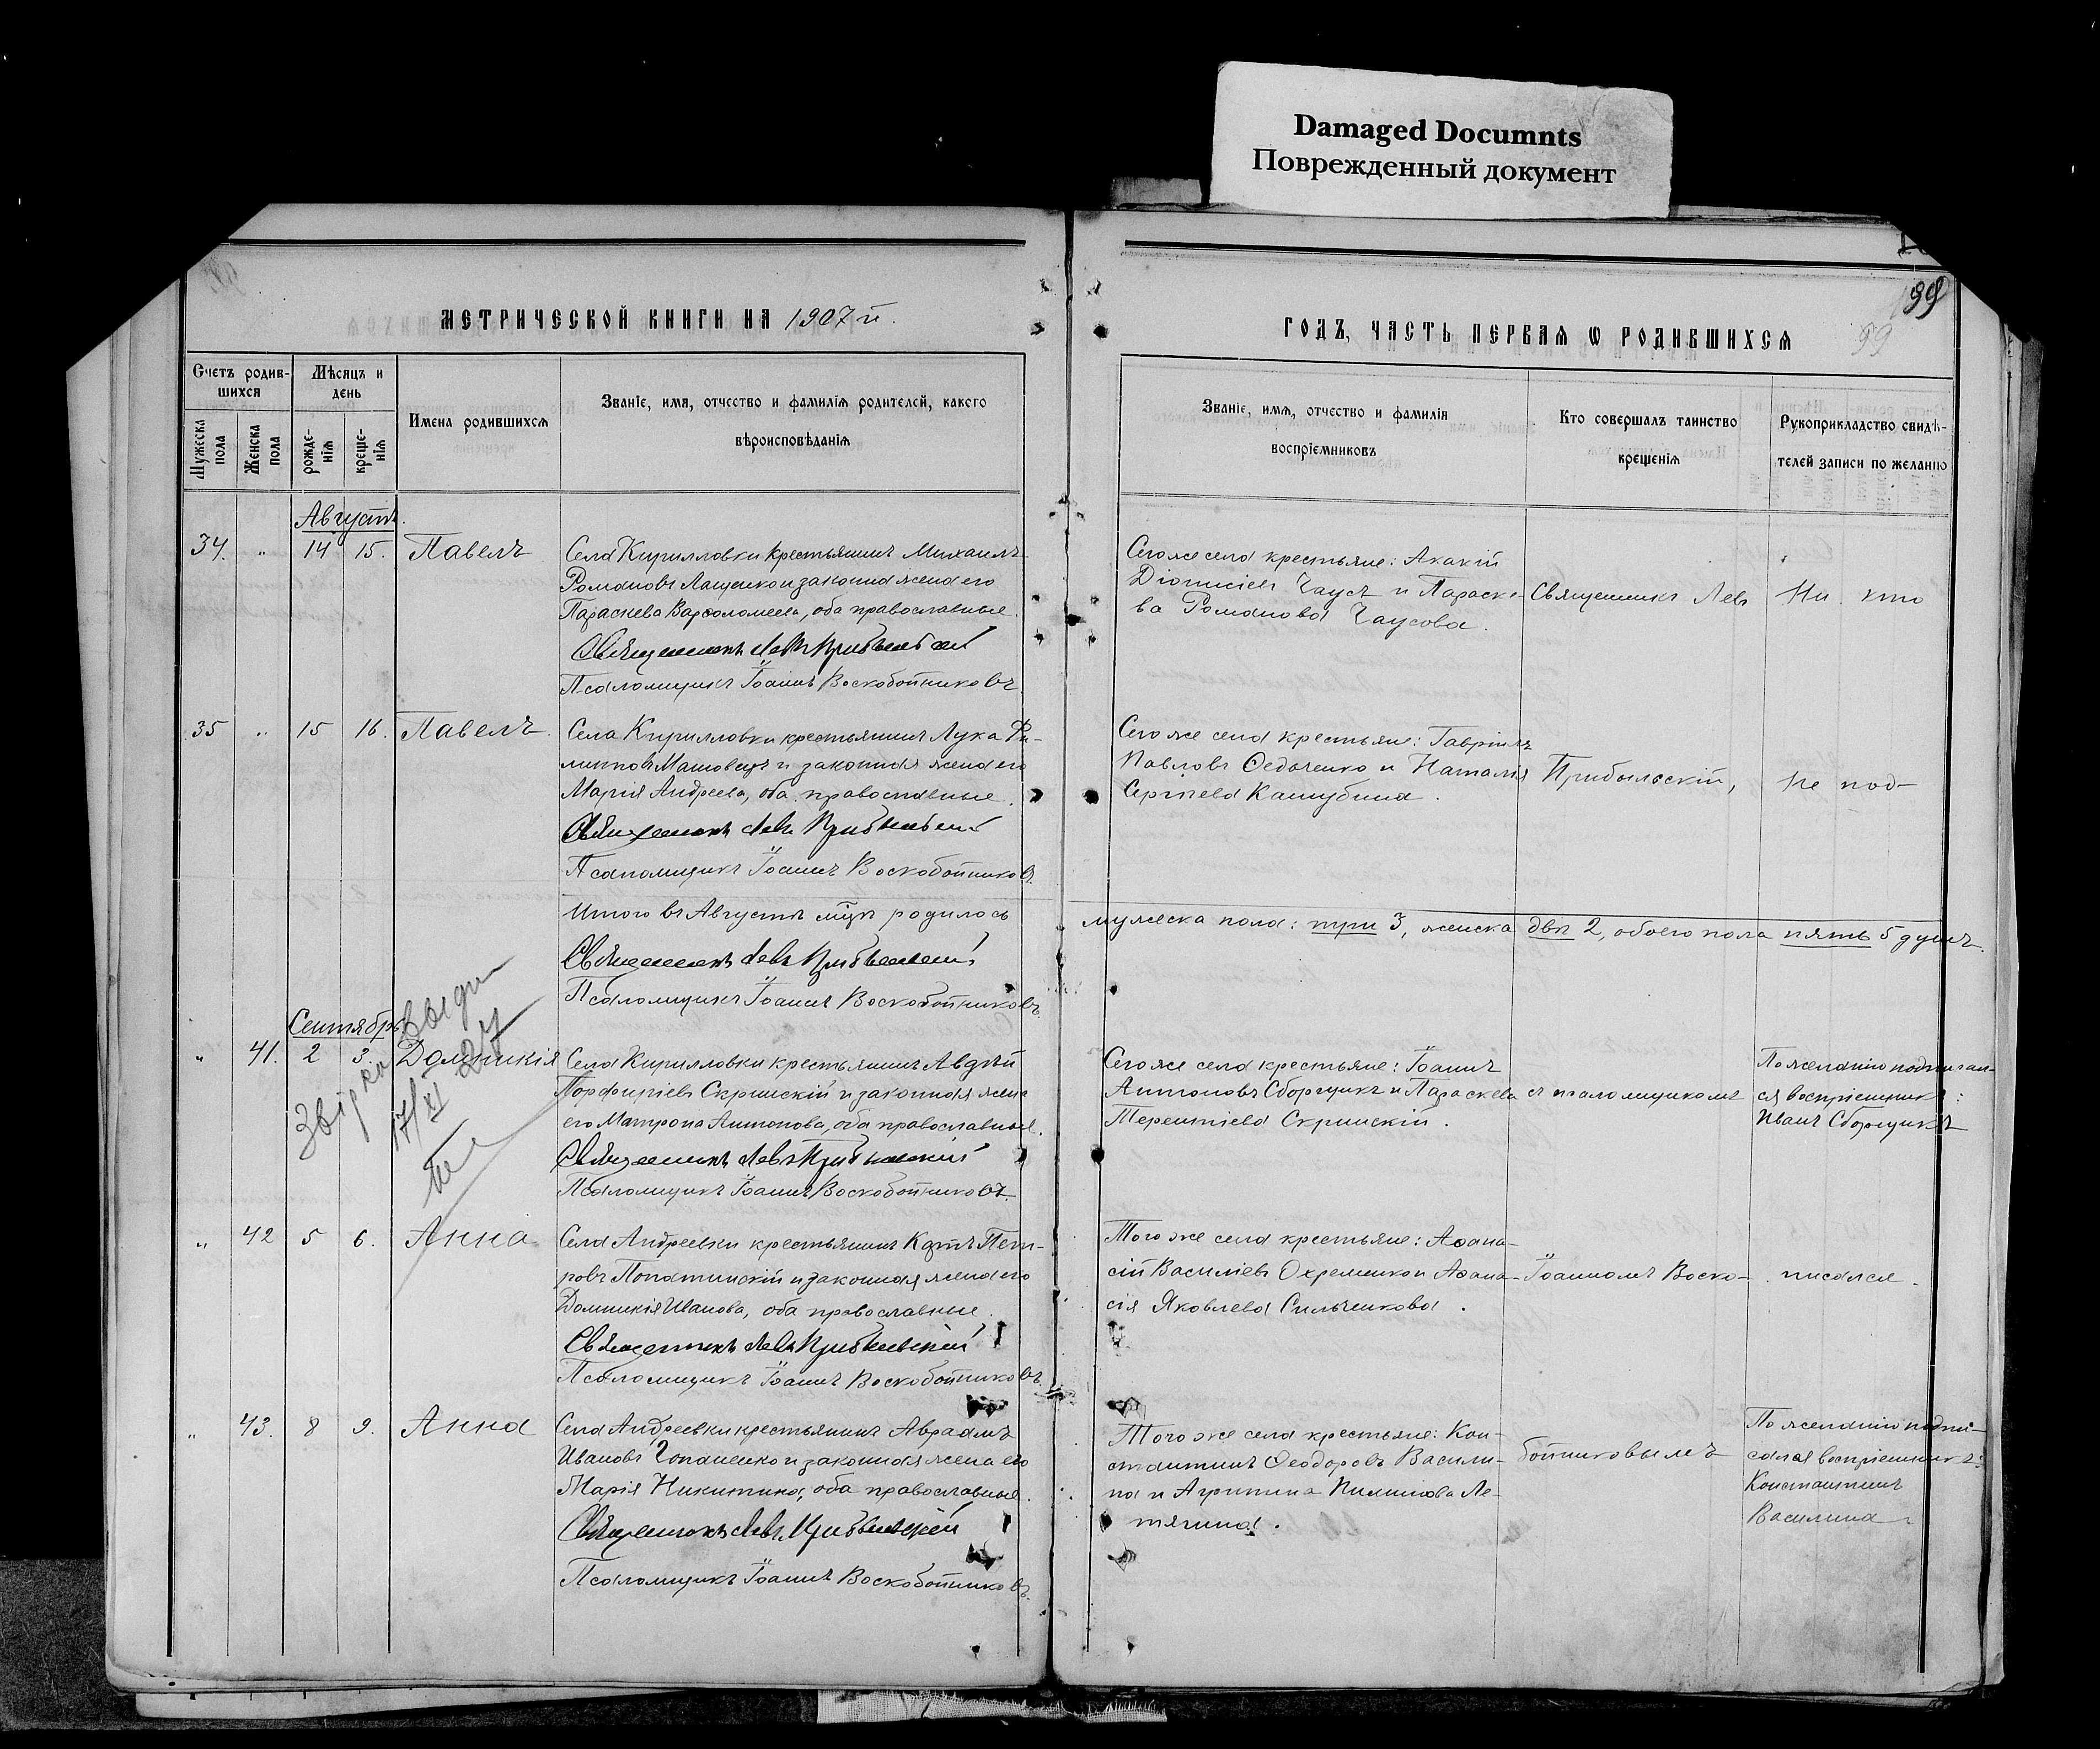 Damaged Documnts
Поврежденный документ
МЕТРИЧЕСКОЙ КНИГИ НА 1907 й.
Счетъ родив-
шихся
Мѣсяцъ и
день
Мужеска пола
Женска пола
рожде-
нія
креще-
нія
Имена родившихся
Званіе, имя, отчество и фамилія родителей, какого
вѣроисповѣданія
Августъ.
34. " 14 15. Павелъ
Села Кирилловки крестьянинъ Михаилъ
Романовъ Лащенко и законная жена его
Параскева Варѳоломеева, оба православные.
Священникъ Левъ Прибыльскій
Псаломщикъ Іоаннъ Воскобойниковъ.
35 " 15 16. Павелъ.
Села Кирилловки крестьянинъ Лука Фи-
липповъ и законная жена его
Марія Андреева, оба православные.
Священникъ Левъ Прибыльскій
Псаломщикъ Іоаннъ Воскобойниковъ.
Итого въ Августѣ мцѣ родилось
Священникъ Левъ Прибыльскій
Псаломщикъ Іоаннъ Воскобойниковъ.
Сентябрь
" 41. 2 3. Домникія
Села Кирилловки крестьянинъ Авдѣй
Порфиріевъ Скринскій и законная жена
его Матрона Антонова, оба православные.
Священникъ Левъ Прибыльскій
Псаломщикъ Іоаннъ Воскобойниковъ.
17/XI
" 42 5 6. Анна
Села Андреевки крестьянинъ Пет-
ровъ Лопатинскій и законная жена его
Домникія Иванова, оба православные.
Священникъ Левъ Прибыльскій
Псаломщикъ Іоаннъ Воскобойниковъ.
" 43. 8 9. Анна
Села Андреевки крестьянинъ Авраамъ
Ивановъ и законная жена его
Марія Никитина, оба православные.
Священникъ Левъ Прибыльскій
Псаломщикъ Іоаннъ Воскобойниковъ.
99
99
ГОДЪ, ЧАСТЬ ПЕРВАЯ Ѡ РОДИВШИХСЯ
Званіе, имя, отчество и фамилія
воспріемниковъ
Кто совершалъ таинство
крещенія
Рукоприкладство свидѣ-
телей записи по желанію
Сего же села крестьяне: Акакій
Діонисіевъ Чаусъ и Параске-
ва Романова Чаусова.
Священникъ Левъ
Ни кто
Сего же села крестьяне: Гавріилъ
Павловъ Ѳедоченко и Наталія
Сергіева Кашубина.
Прибыльскій,
не под-
мужеска пола: три 3, женска двѣ 2, обоего пола пять 5 душъ.
Сего же села крестьяне: Іоаннъ
Антоновъ Сборщикъ и Параскева
Терентіева Скринскій.
съ псаломщикомъ
По желанію подписал-
ся воспріемникъ:
Иванъ Сборщикъ
Того же села крестьяне: Аѳана-
сій Василіевъ Охременко и Аѳана-
сія Яковлева Сильченкова.
Іоанномъ Воско-
писался.
Того же села крестьяне: Кон-
стантинъ Ѳеодоровъ Васили-
на и Агрипина Ле-
тягина.
бойниковымъ
По желанію подпи-
сался воспріемникъ:
Константинъ
Василина